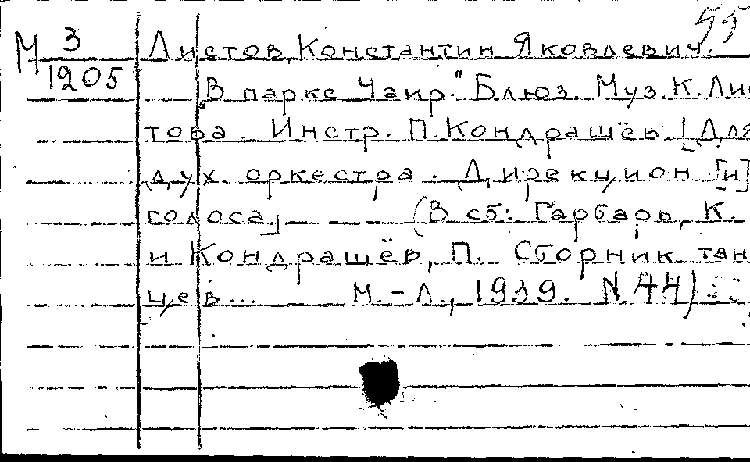 55
М 3/1205 Листов, Константин Яковлевич.
"В парке Чаир." Блюз. Муз. К. Лис
това. Инстр. П. Кондрашёв. [Для
дух. оркестра. Дирекцион [и]
голоса] (В сб: Гарбарь, К.
и Кондрашёв, П. Сборник тан
цев... М.-Л., 1939. N 44)